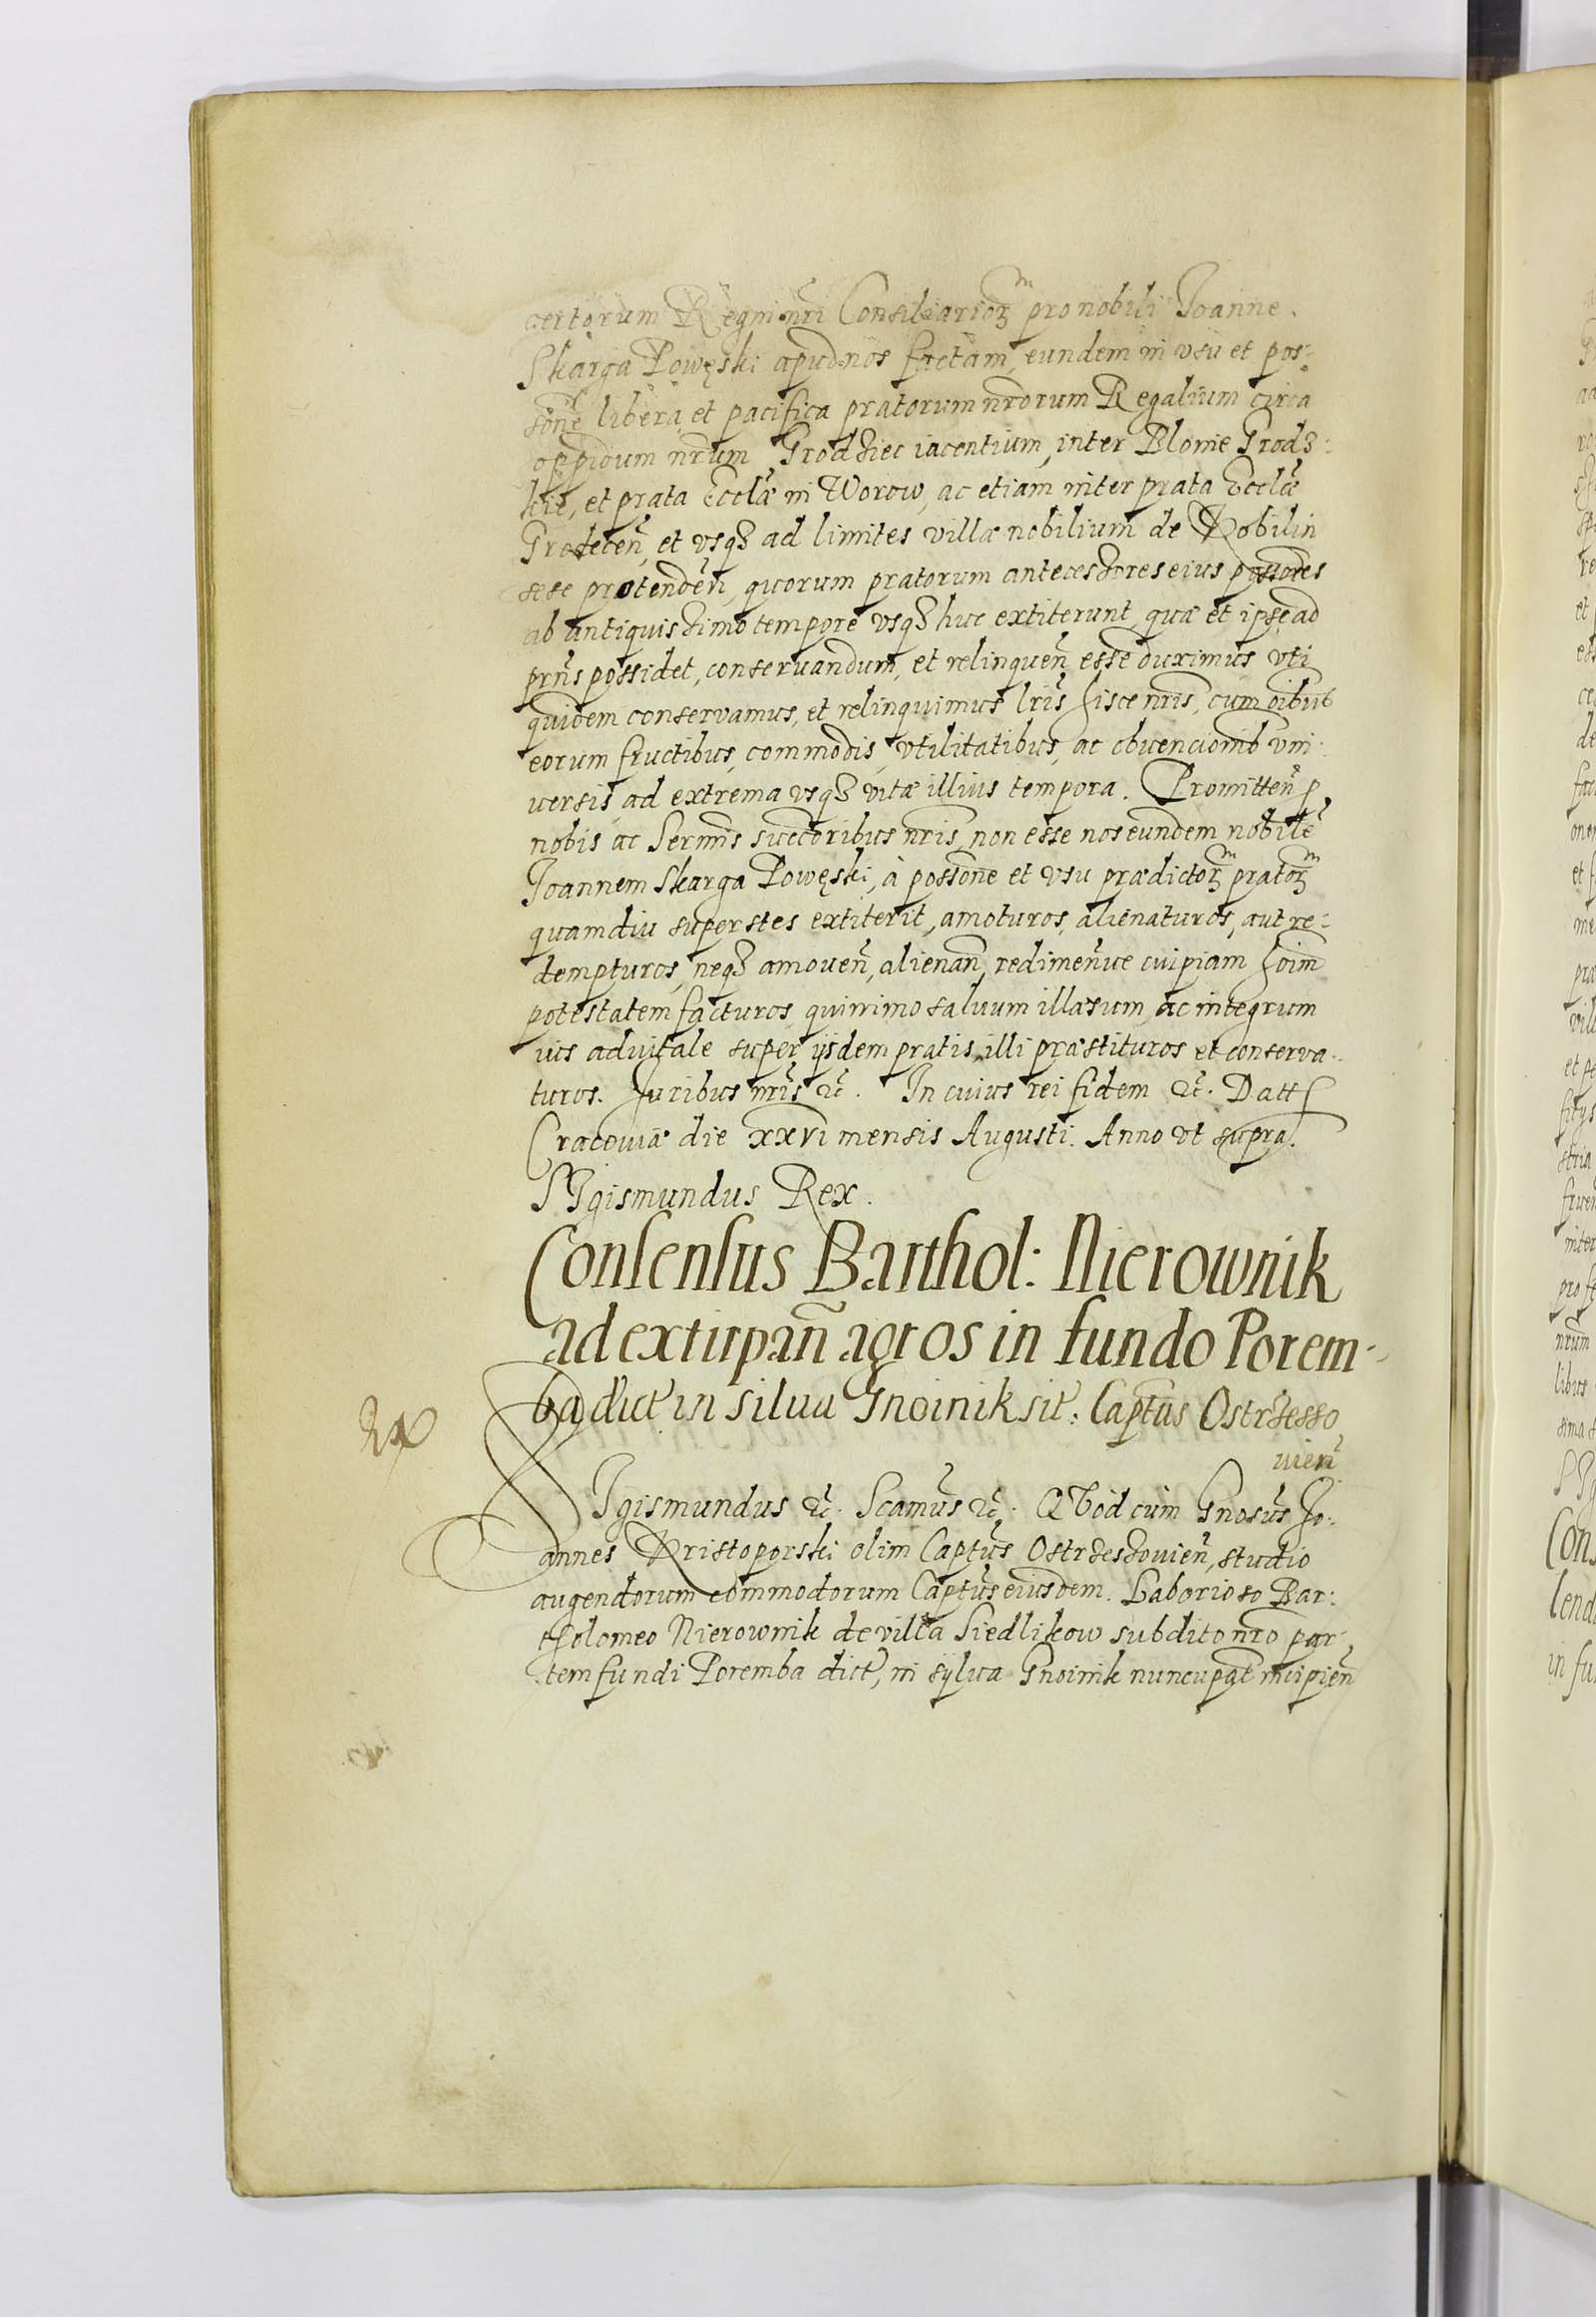 certorum Regni nr̃i Consiliarioꝝ pro nobili Joanne
Skarga Powęski apud nos factam, eundem in vsu et pos-
sione libera et pacifica pratorum nr̃orum Regalium circa
oppidum nr̃um Grodziec iacentium, inter Blonie Grodz:
kie, et prata Eccl̃æ in Worow, ac etiam inter prata Eccl̃æ
Grodecen̄, et vsqȝ ad limites villæ nobilium de Kobilin
sese protenden̄, quorum pratorum antecessores eius possores
ab antiquissimo tempore vsqȝ huc extiterunt, quæ et ipse ad
prñs possidet, conseruandum, et relinquen̄ esse duximus vti
quidem conservamus, et relinquimus lr̃is hisce nr̃is, cum oĩbus
eorum fructibus, commodis, vtilitatibus, ac obuencionib vni:
uersis, ad extrema vsqȝ vitæ illius tempora. Promitten̄ p
nobis ac Serm̃is succoribus nr̃is, non esse nos eundem nobilẽ
Joannem Skarga Powęski, à possone et vsu prædictoꝝ pratoꝝ
quamdiu superstes extiterit, amoturos, alienaturos, aut re-
dempturos, neqȝ amouen̄, alienan̄, redimen̄ue cuipiam hoĩm
potestatem facturos, quinimo saluum illæsum, ac integrum
ius aduitale super ijsdem pratis, illi præstituros et conserva-
turos. Juribus nr̃is &c̃. In cuius rei fidem &c̃. Datt
Cracouiæ die xxvi mensis Augusti. Anno vt supra.
SIgismundus Rex.
Consensus Barthol: Nierownik
ad extirpan̄ agros in fundo Porem-
ba dict̃ in silua Gnoinik sit̃: Captũs Ostrzesso
uien̄
SIgismundus &c̃. Scamũs &c̃. QVod cum Gnosũs Jo-
annes Kristoporski olim Captũs Ostrzeszouien̄, studio
augendorum commodorum Captũs eiusdem. Laborioso Bar:
tholomeo Nierownik de villa Siedlikow subdito nr̃o par-
tem fundi Poremba dict̃, in sylua Gnoinik nuncupat̃ incipien̄